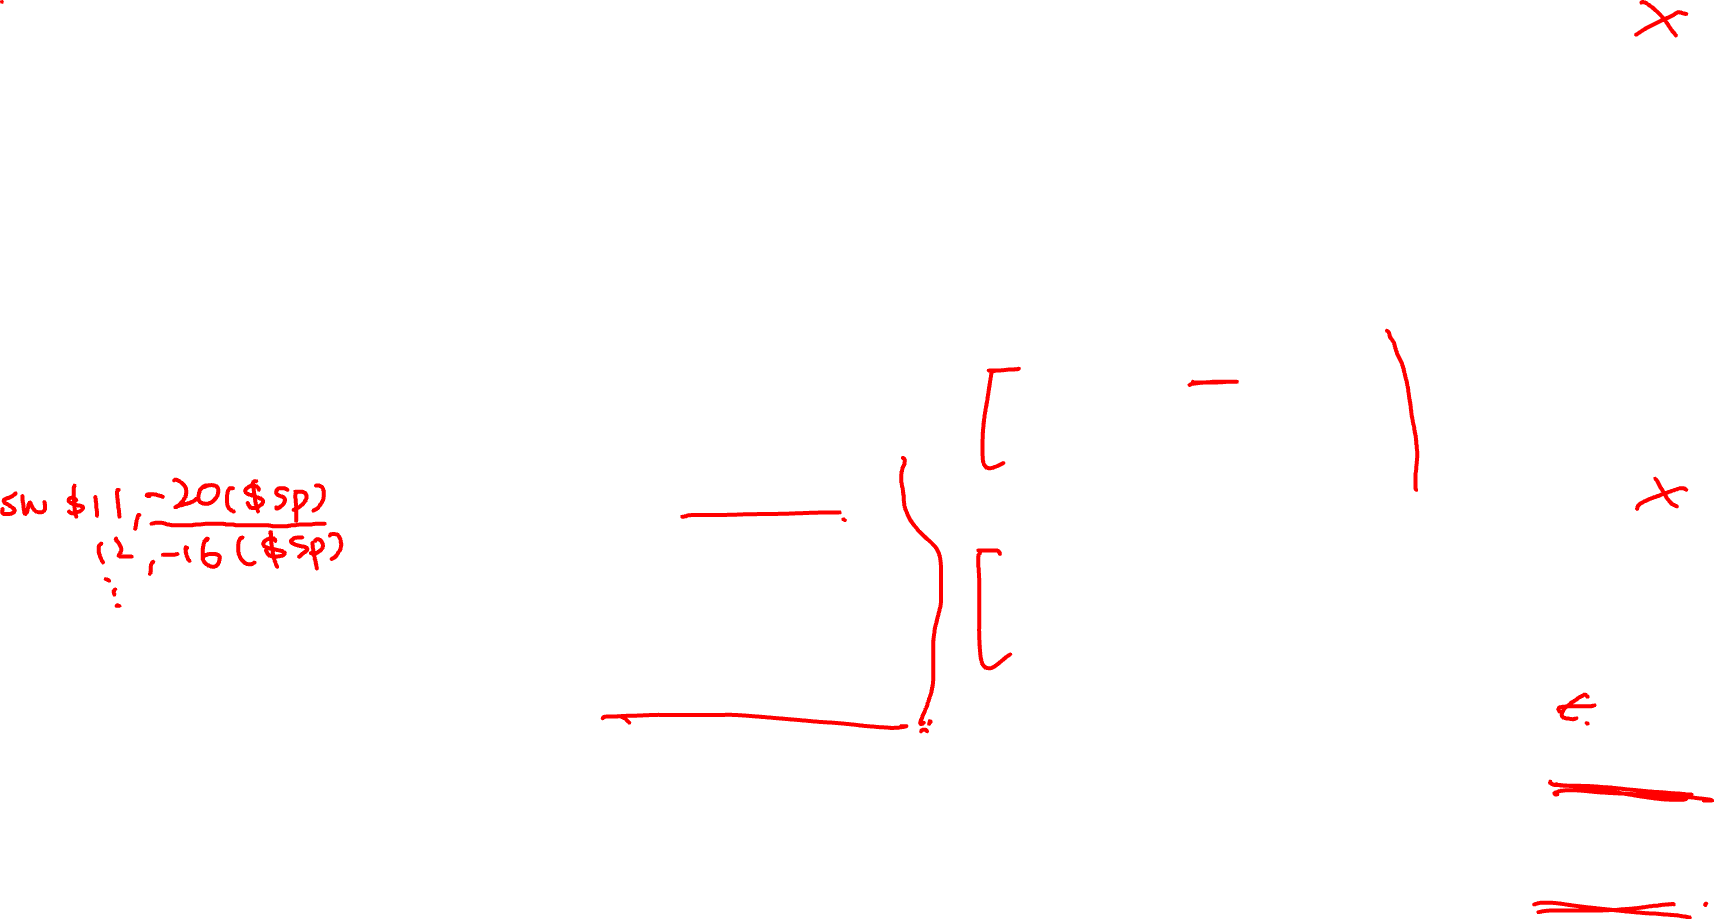 sw $11, -20($sp)
12, -16($sp)
⋮